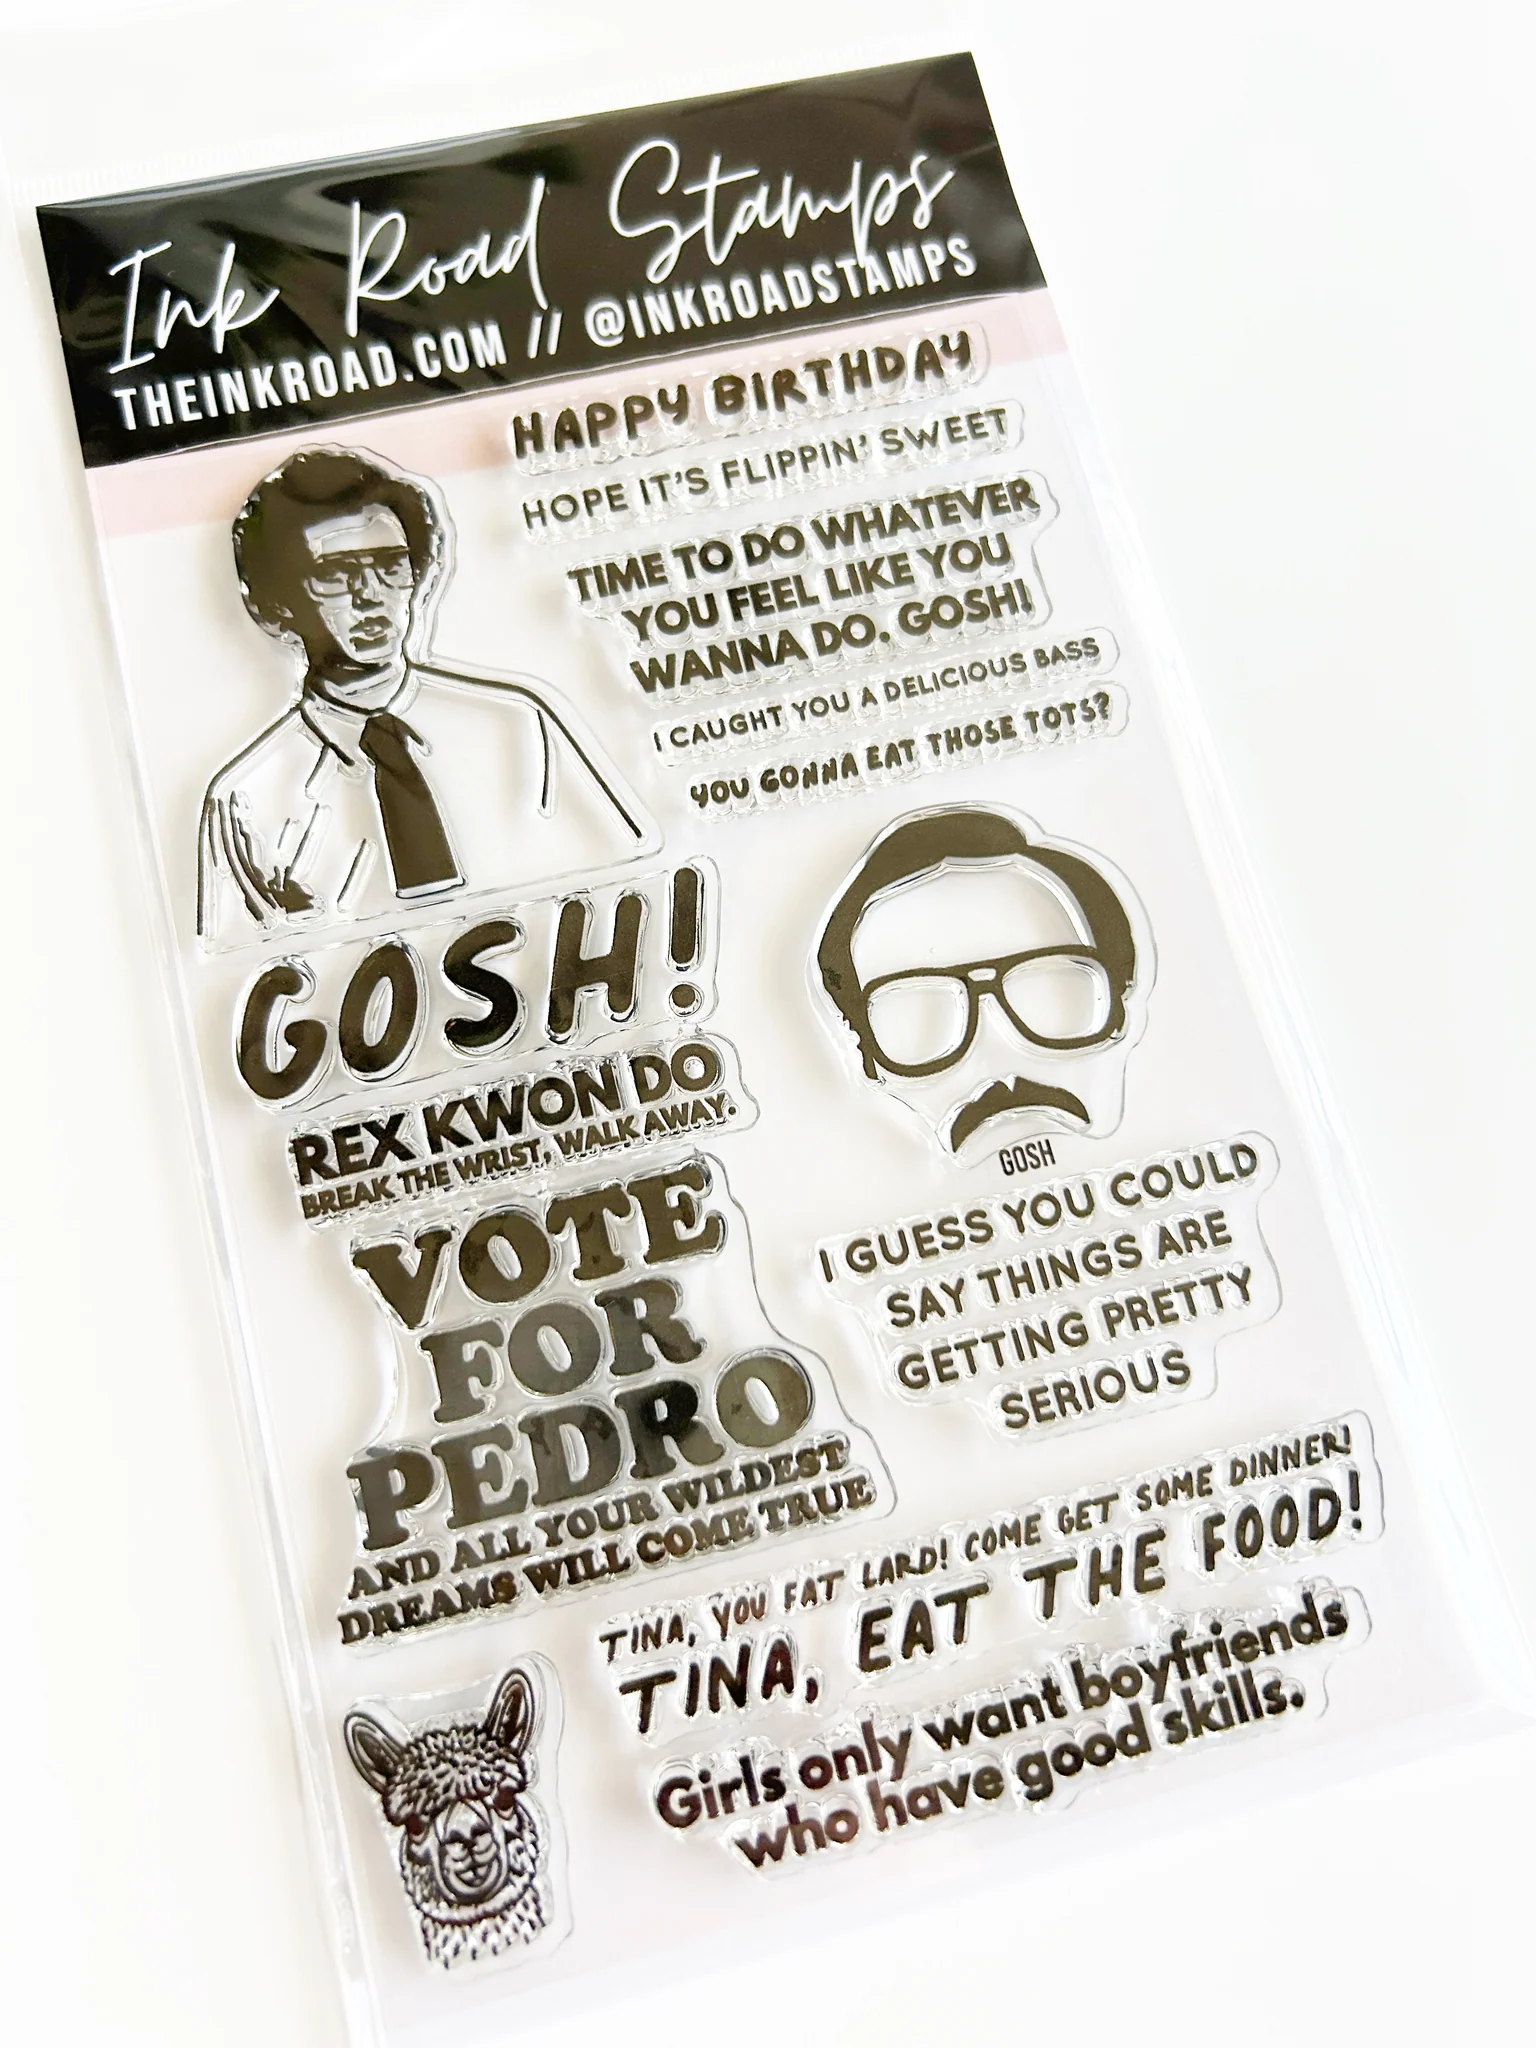 Ink Road Stamps
THEINKROAD.COM // @INKROADSTAMPS
HAPPY BIRTHDAY
HOPE IT'S FLIPPIN' SWEET
TIME TO DO WHATEVER
YOU FEEL LIKE YOU
WANNA DO. GOSH!
I CAUGHT YOU A DELICIOUS BASS
YOU GONNA EAT THOSE TOTS?
GOSH!
REX KWON DO
BREAK THE WRIST, WALK AWAY.
VOTE
FOR
PEDRO
AND ALL YOUR WILDEST
DREAMS WILL COME TRUE
GOSH
I GUESS YOU COULD
SAY THINGS ARE
GETTING PRETTY
SERIOUS
TINA, YOU FAT LARD! COME GET SOME DINNER!
TINA, EAT THE FOOD!
Girls only want boyfriends
who have good skills.